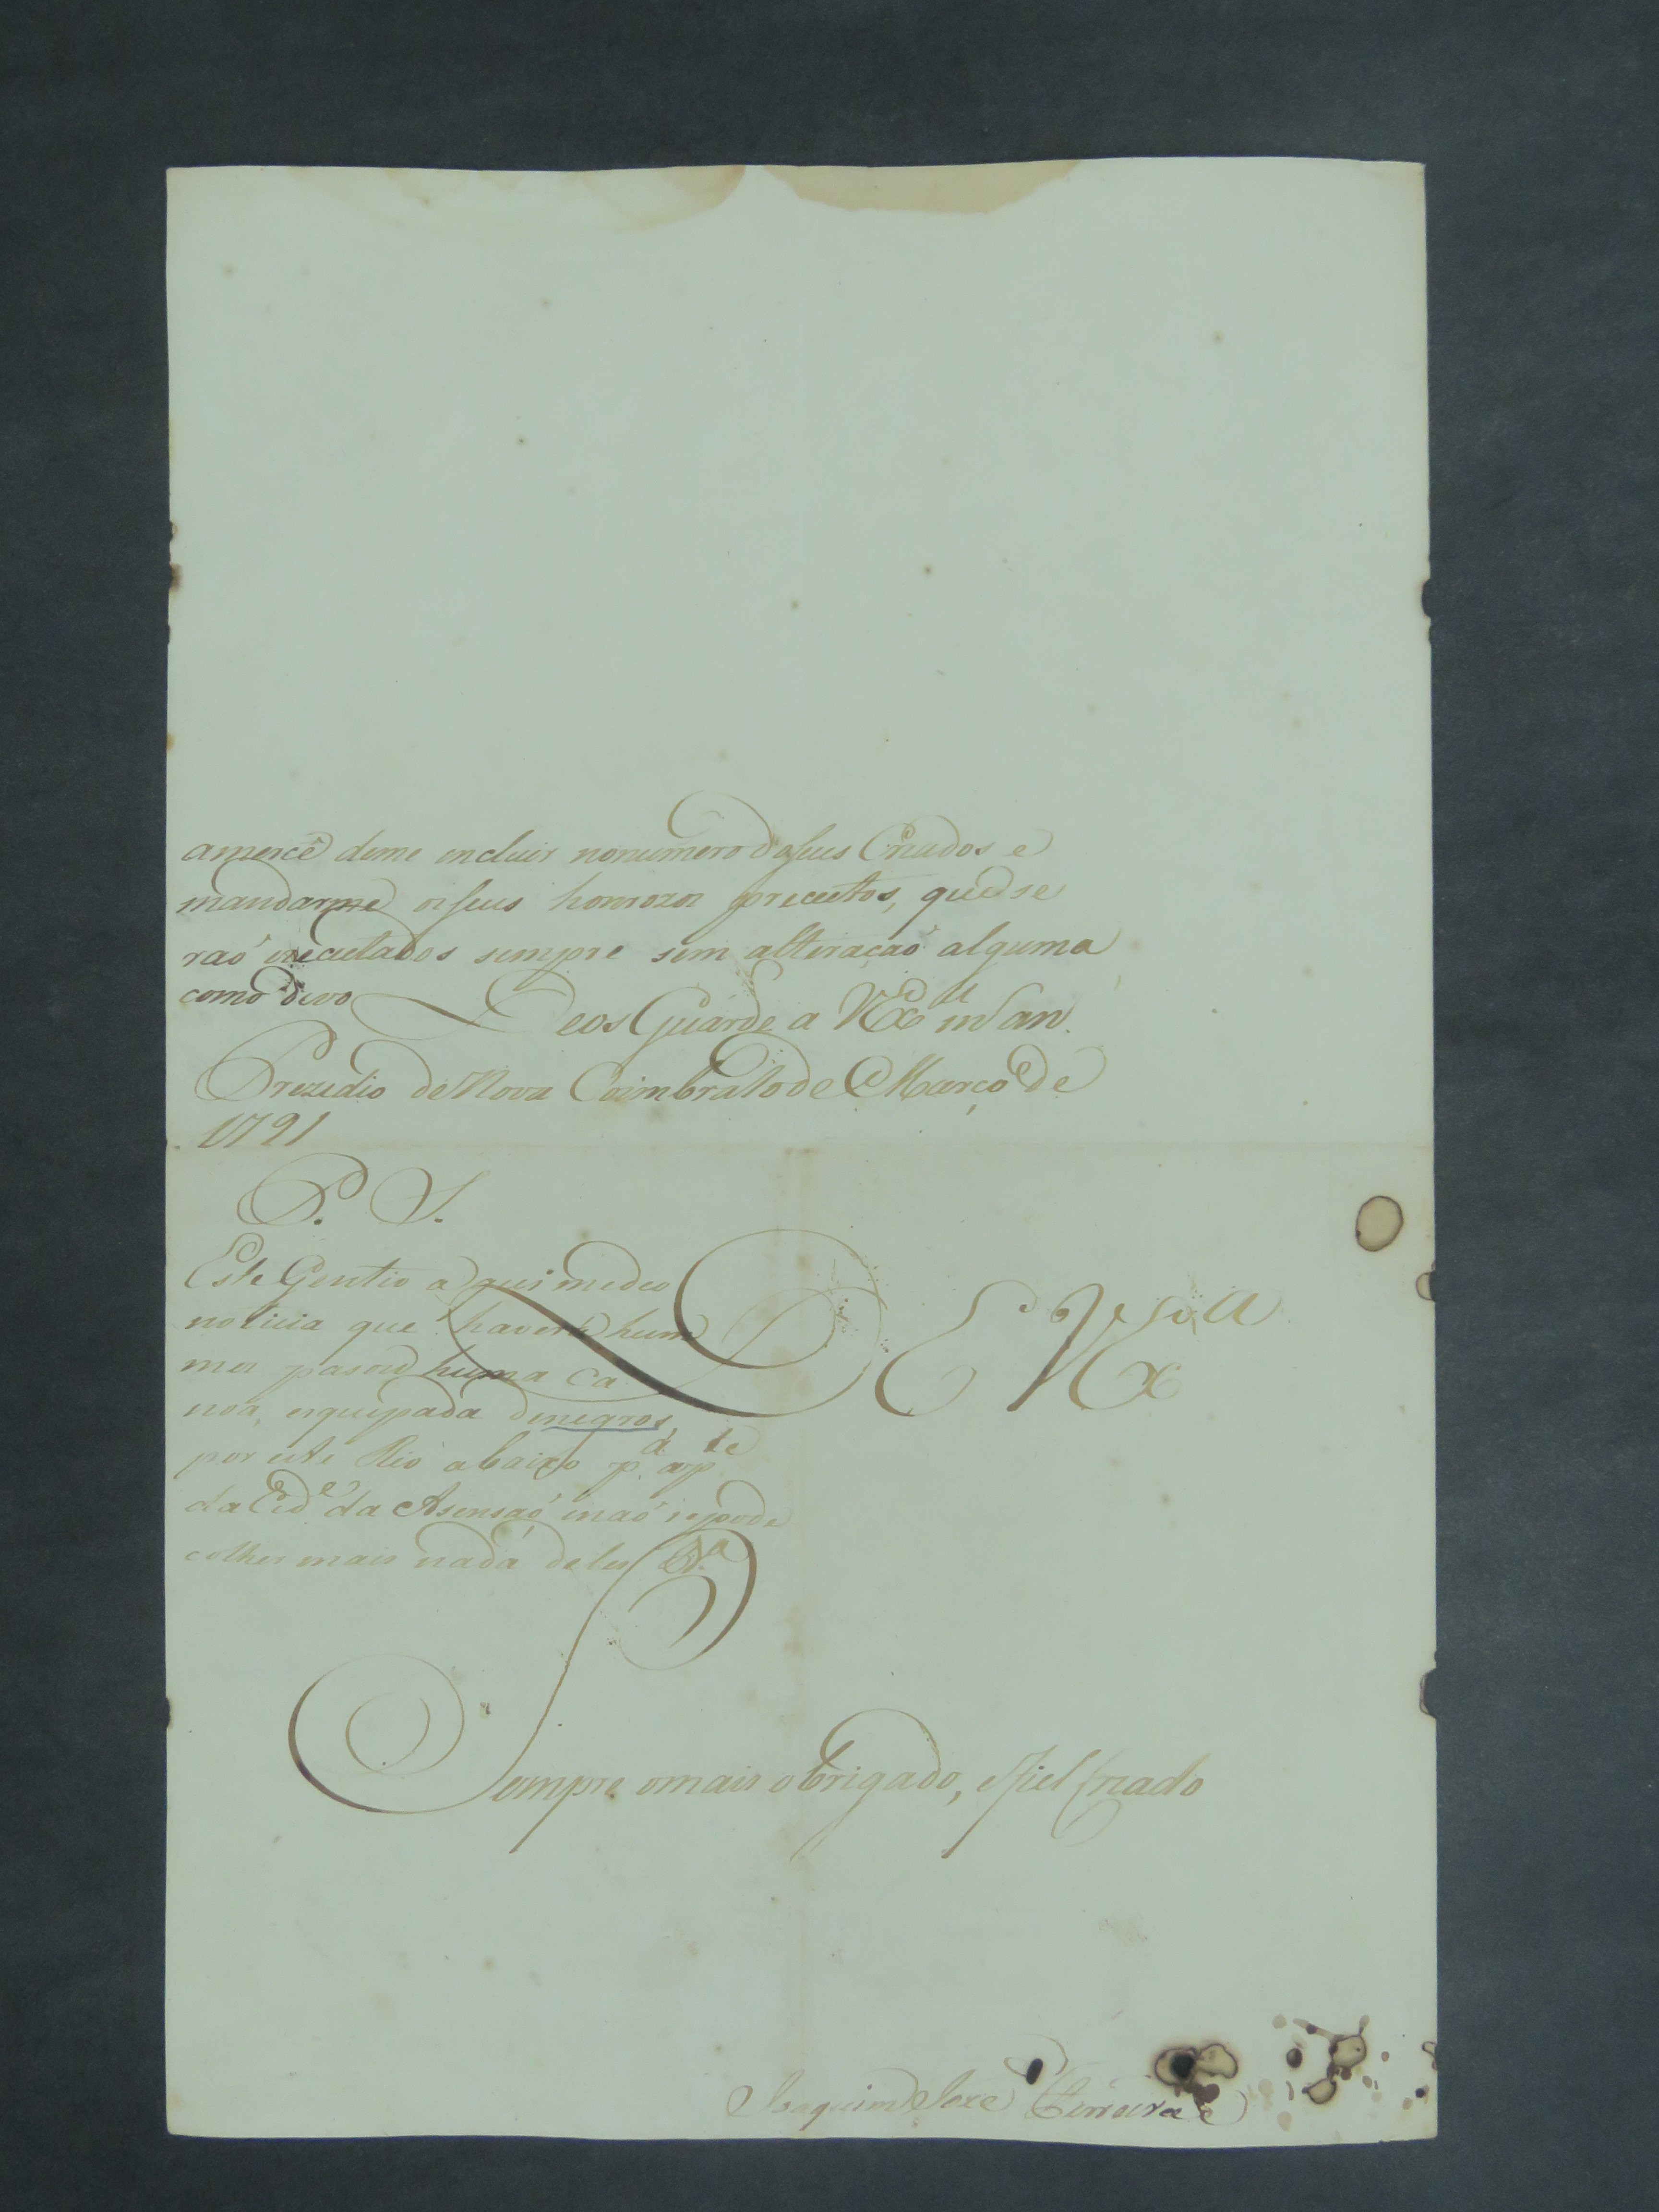 amercê deme incluir nonumero d'oseus Criados e
mandarme osseus honrozos preceitos, que se
raó executados sempre sem alteraçaó alguma
como devo Deos Guarde a VEx.ª m.s an.
Prezidio de Nova Coimbra 10 de Março de
1791
P. S.
Este Gentio aqui medeo
noticia que haverá hum
mes pasou huma Ca
noa, esquipada denegros,
por este Rio abaixo p.ª ap.te
da Cid.e da Asensaó, enaó sepode
colher mais nada deles
De V Ex.ª
Sempre omais obrigado, efiel Criado
Joaquim Joze Ferreira